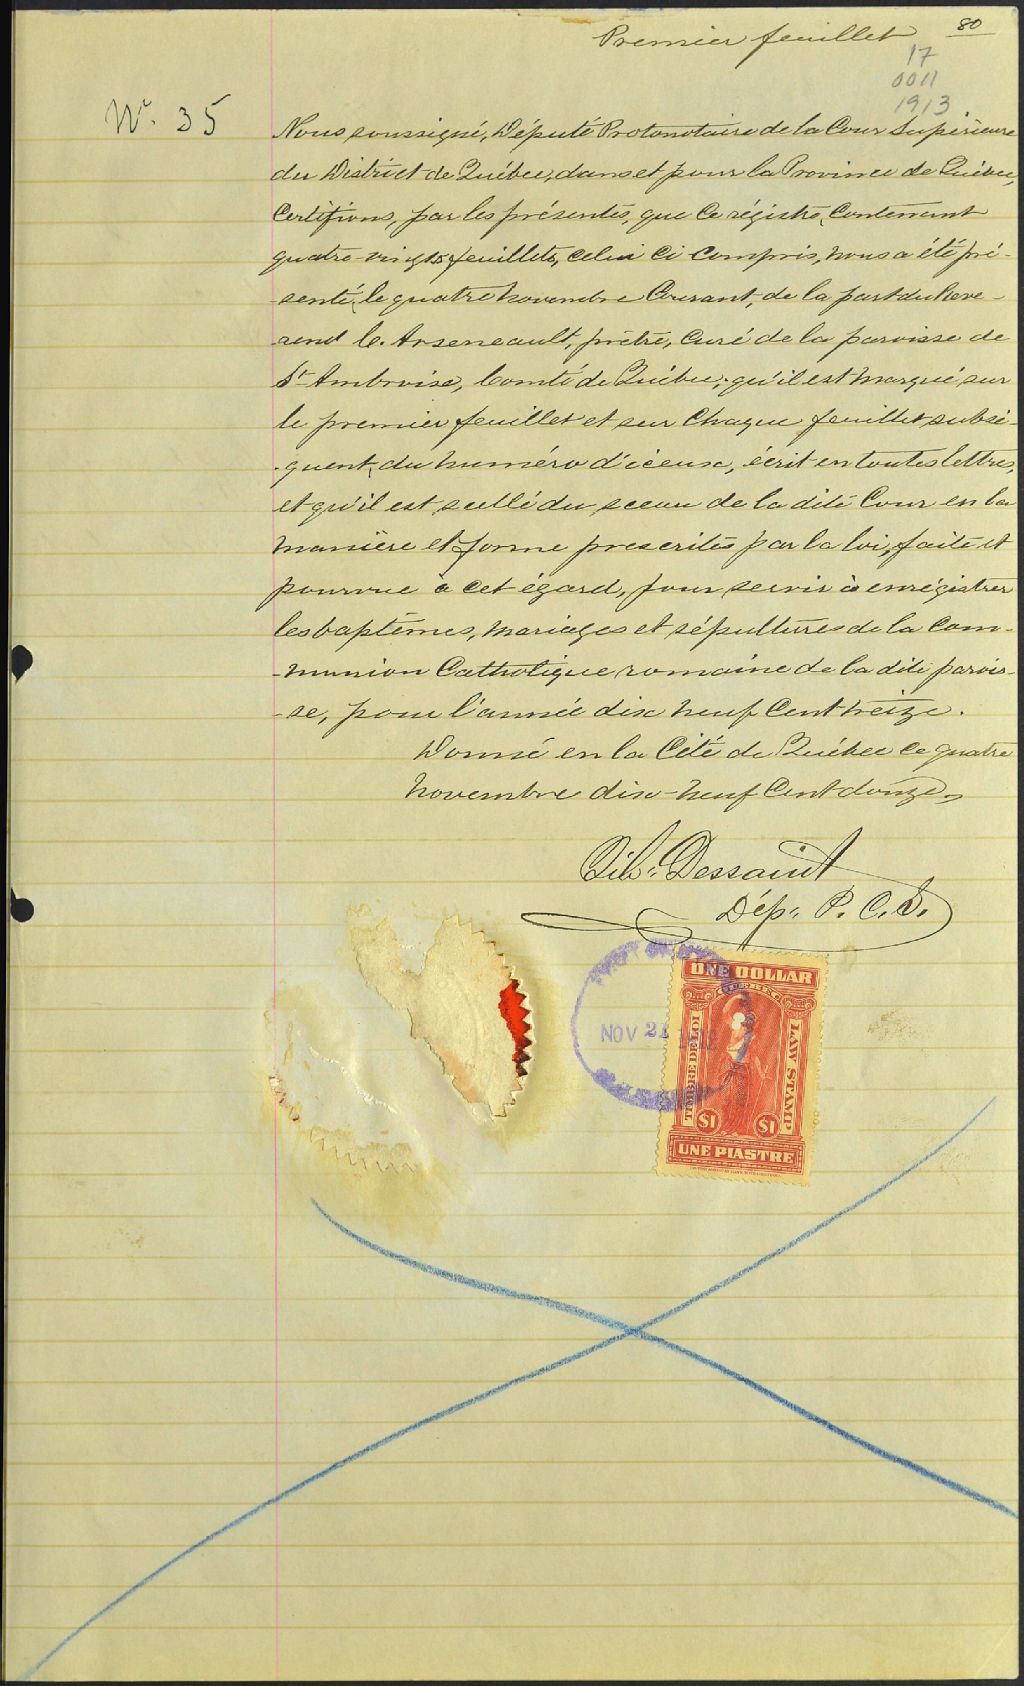 Premier feuillet
80
17
0011
1913
No. 35
Nous soussigné, Député Protonotaire de la Cour Supérieure
du District de Québec, dans et pour la Province de Québec,
Certifions, par les présentes, que ce régistre, Contenant
quatre-vingts feuillets, celui ci compris, nous a été pré-
-senté, le quatre novembre Courant, de la part du Reve-
-rend C. Arseneault, prêtre, Curé de la paroisse de
St Ambroise, Comté de Québec; qu'il est marqué sur
le premier feuillet et sur chaque feuillet subsé-
-quent, du numéro d'iceux, écrit en toutes lettres,
et qu'il est scellé du sceau de la dite Cour en la
manière et forme prescrites par la loi, faite et
pourvue à cet égard, pour servir à enrégistrer
les baptêmes, mariages et sépultures de la Com-
-munion Catholique romaine de la dite parois-
-se, pour l'année dix neuf Cent treize.
Donné en la Cité de Québec ce quatre
Novembre dix-neuf Cent douze,
Dessaint
Dép: P. C. S.
ONE DOLLAR
QUEBEC
TIMBRE DE LOI
LAW STAMP
$1 $1
UNE PIASTRE
NOV 21